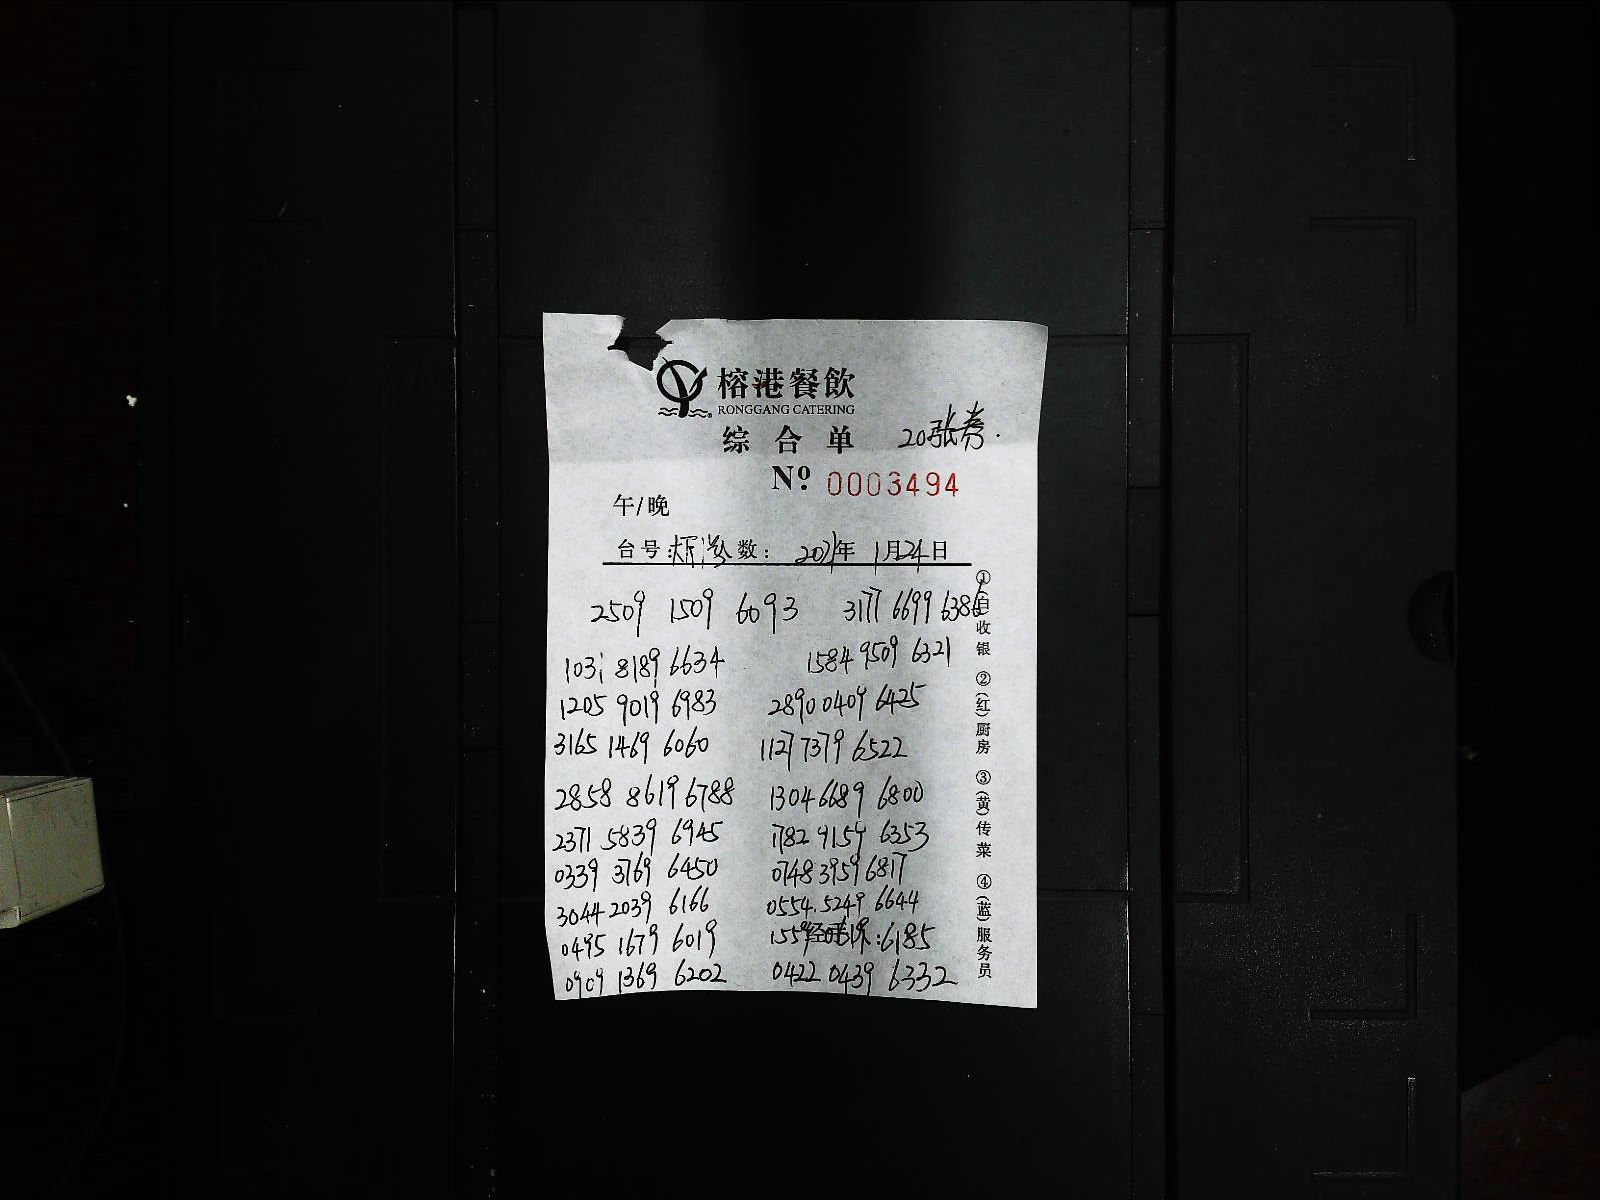 榕港餐飲
RONGGANG CATERING
综合单 20张
Nº 0003494
午/晚
台号: 数: 年 1月24日
2509 1509 6093 3177 6699 6386
1031 8189 6634 1584 9509 6321
1205 9019 6983 2890 0409 6425
3165 1469 6060 1127 7379 6522
2858 8619 6788 1304 6689 6800
2371 5839 6945 1782 9159 6353
0339 3769 6450 0748 3959 6817
3044 2039 6166 0554. 5249 6644
0495 1679 6019 1559 : 6185
0909 1369 6202 0422 0439 6332
①(白)收银 ②(红)厨房 ③(黄)传菜 ④(蓝)服务员